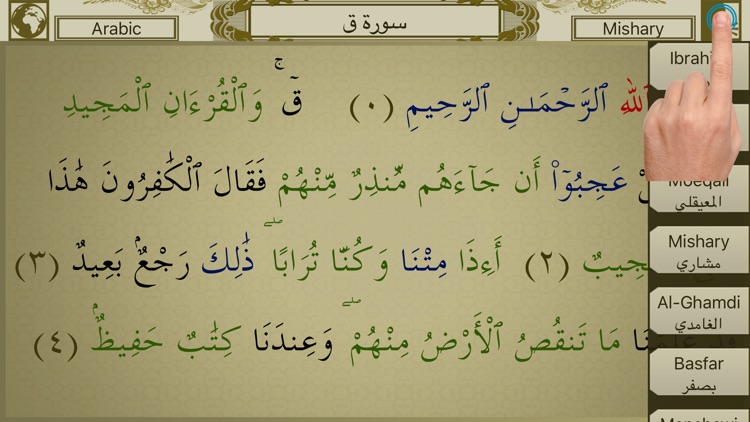 Arabic
سورة ق
Mishary
ٱللَّهِ ٱلرَّحْمَـٰنِ ٱلرَّحِيمِ ﴿٠﴾ قٓ ۚ وَٱلْقُرْءَانِ ٱلْمَجِيدِ
عَجِبُوٓا۟ أَن جَآءَهُم مُّنذِرٌ مِّنْهُمْ فَقَالَ ٱلْكَٰفِرُونَ هَٰذَا
﴿٢﴾ أَءِذَا مِتْنَا وَكُنَّا تُرَابًا ۖ ذَٰلِكَ رَجْعٌۢ بَعِيدٌ ﴿٣﴾
مَا تَنقُصُ ٱلْأَرْضُ مِنْهُمْ ۖ وَعِندَنَا كِتَٰبٌ حَفِيظٌۢ ﴿٤﴾
Moeqali
المعيقلي
Mishary
مشاري
Al-Ghamdi
الغامدي
Basfar
بصفر